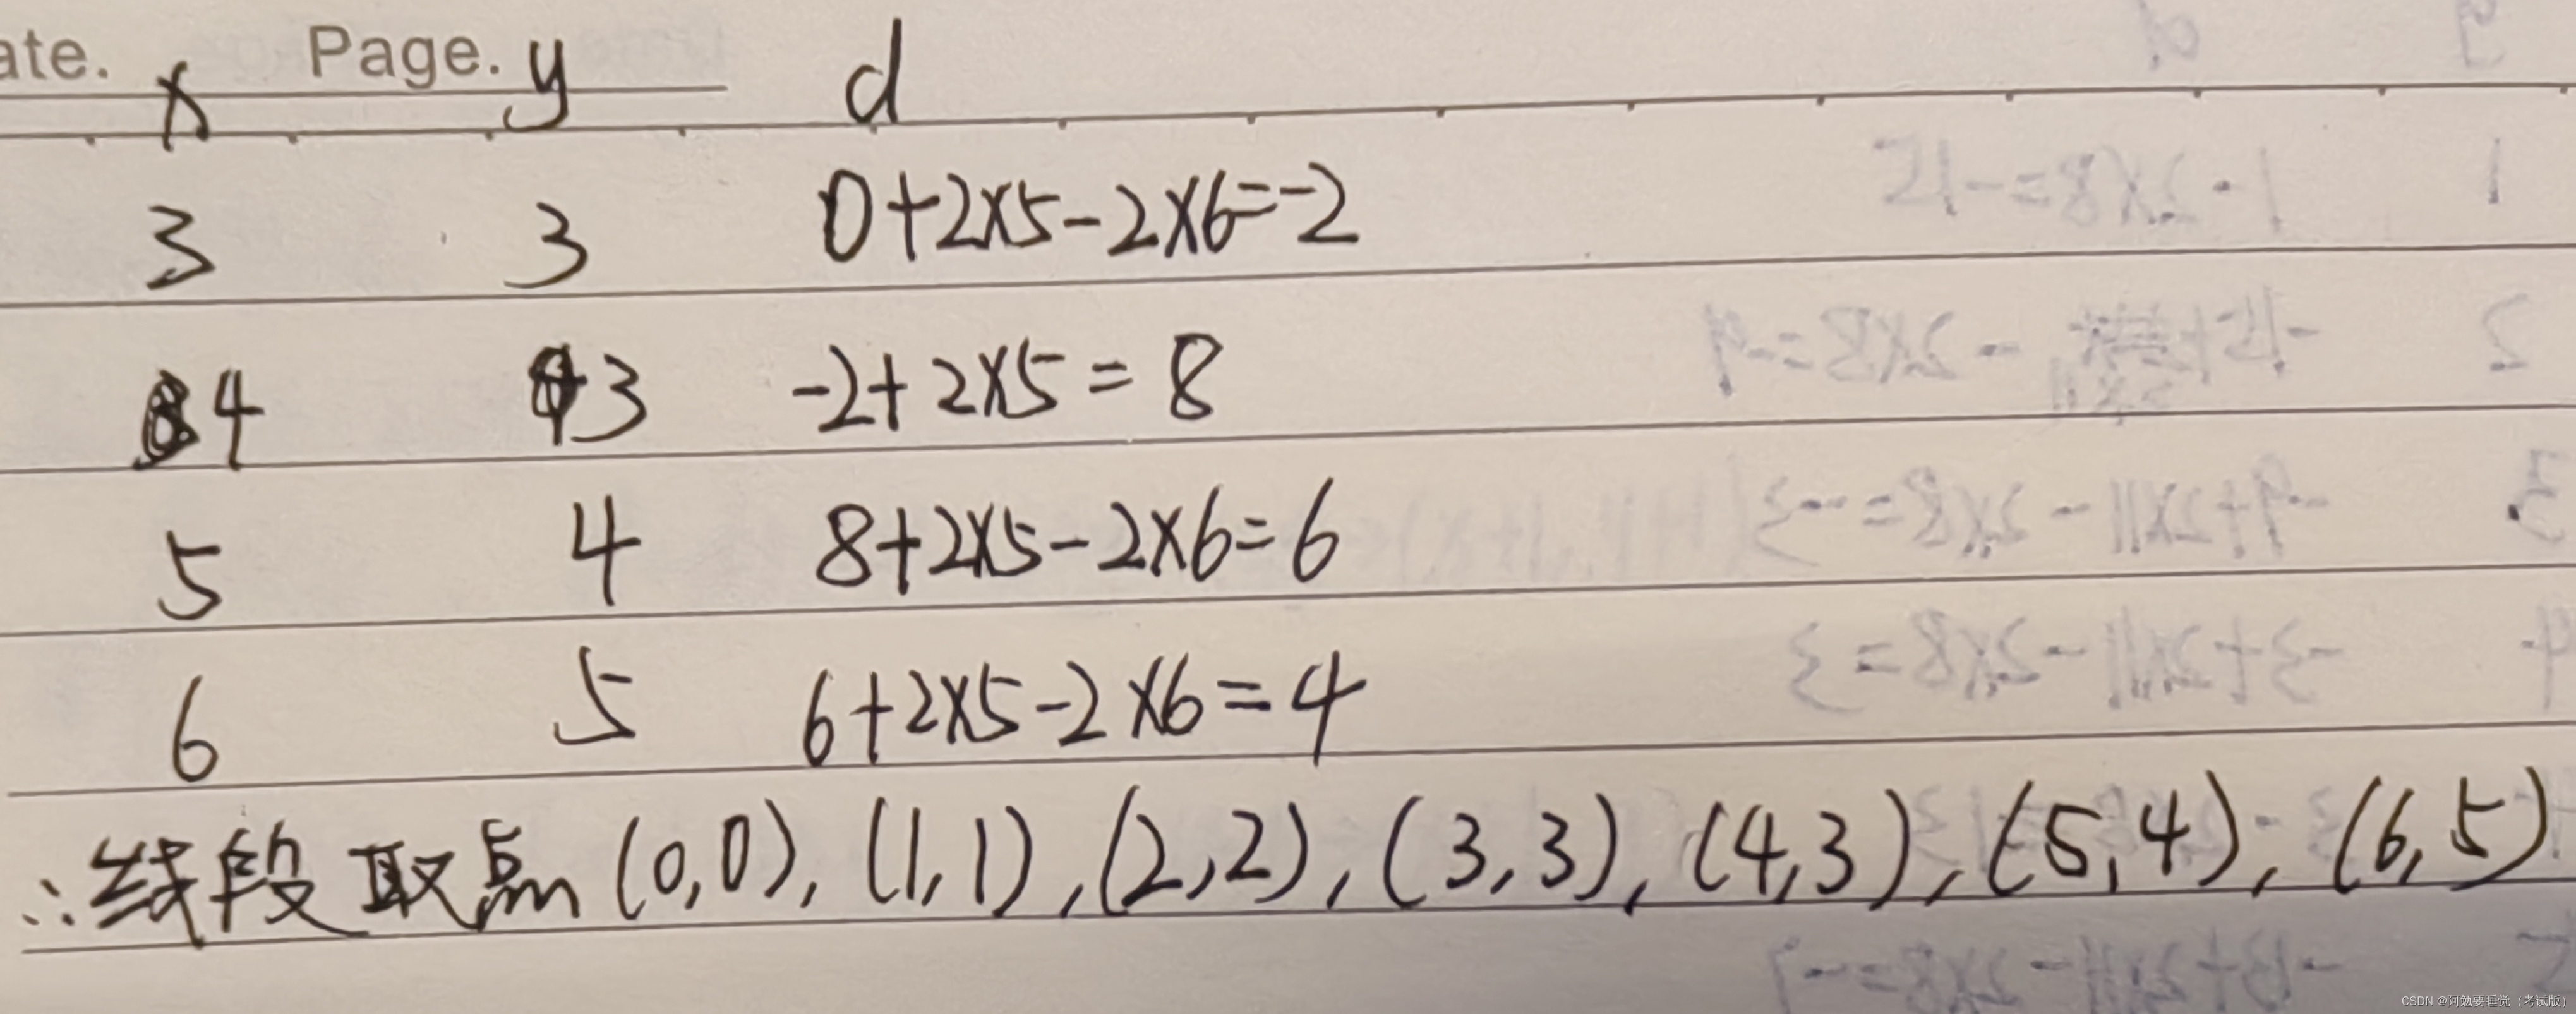 ate. Page.
x y d
3 3 0+2×5-2×6=-2
4 3 -2+2×5=8
5 4 8+2×5-2×6=6
6 5 6+2×5-2×6=4
∴线段取点(0,0),(1,1),(2,2),(3,3),(4,3),(5,4),(6,5)
CSDN @阿勉要睡觉（考试版）